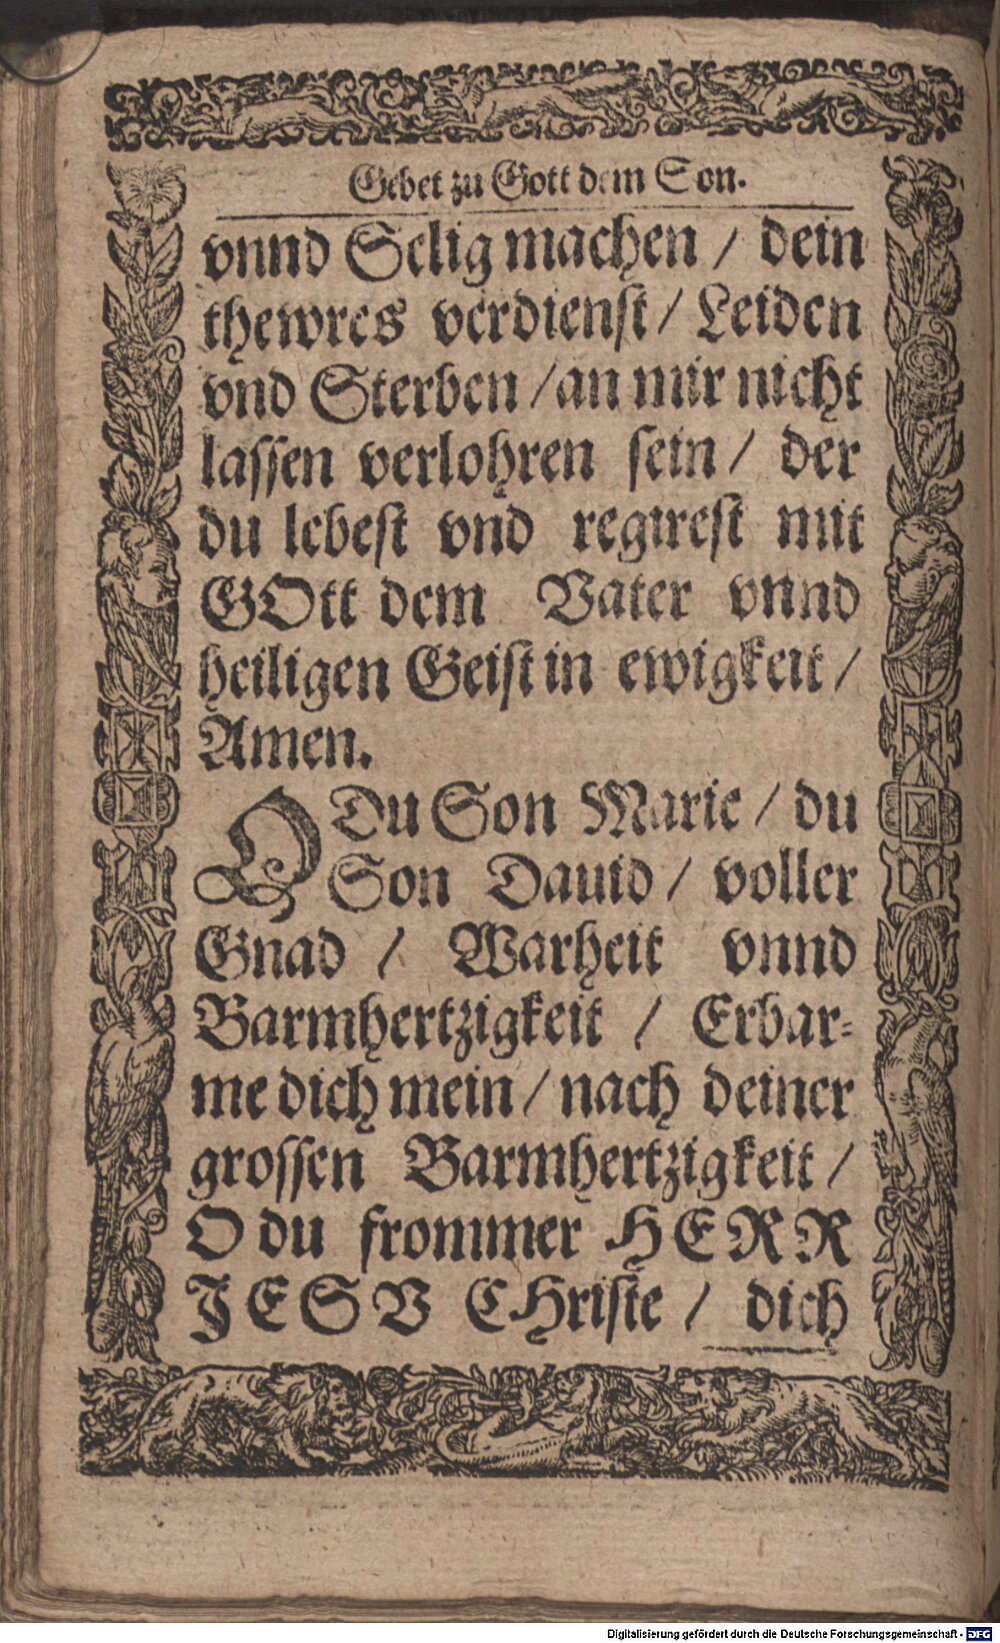 Gebet zu Gott dem Son.
vnnd Selig machen / dein
thewres verdienst / Leiden
vnd Sterben / an mir nicht
lassen verlohren sein / der
du lebest vnd regirest mit
GOtt dem Vater vnnd
heiligen Geist in ewigkeit /
Amen.
O Du Son Marie / du
Son Dauid / voller
Gnad / Warheit vnnd
Barmhertzigkeit / Erbar-
me dich mein / nach deiner
grossen Barmhertzigkeit /
O du frommer HERR
JESV CHriste / dich
Digitalisierung gefördert durch die Deutsche Forschungsgemeinschaft - DFG